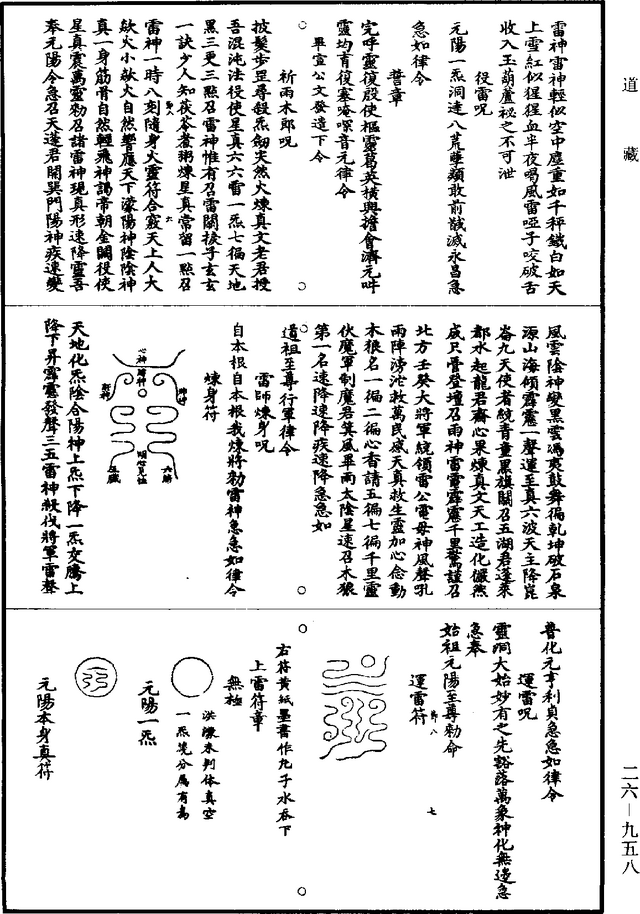 道藏
雷神雷神輕似空中塵重如千秤鐵白如天
上雪紅似猩猩血半夜鳴風雷啞子咬破舌
收入玉葫蘆祕之不可泄
役雷呪
元陽一炁洞達八荒孽類敢前馘滅永昌急
急如律令
誓章
完呼靈復殷使樞靈萬英橫與擔會濟元吽
靈均育復塞唵㗭音元律令
畢宣公文發遣下令
祈雨木郎呪
披髮步罡尋殺炁劒突然火煉真文老君授
吾混沌法役使星真六六雷一炁七徧天地
黑三更三點召雷神惟有召雷閣捘子玄玄
一訣少人知茯苓煮粥煉星真常留一點召
雷神一時八刻隨身火靈符合竅天上人大
欻火小欻火自然響應天下濛陽神陰陰神
真一身筋骨自然輕飛神謁帝朝金闕役使
星真震萬靈勑召諸雷神現真形速降靈吾
奉元陽令急召天蓬君開巽門陽神疾速變
風雲陰神變黑雲馮夷鼓舞徧乾坤破石泉
源山海傾霹靂一聲運至真六波天主降崑
崙九天使者統青童黑旗闢召五湖君蓬萊
都水起龍君齋心果煉真文天工造化儼然
成只管登壇召雨神雷電霹靂千里驚謹召
北方壬癸大將軍統領雷公電母神風聲吼
雨陣滂沱救萬民感天真救生靈加心念動
木狼名一徧二徧心香請五徧七徧千里靈
伏魔軍制魔君箕風畢雨太陰星速召木狼
第一名速降速降疾速降急急如
道祖至尊行軍律令
雷師煉身呪
自本根自本根我煉將勑雷神急急如律令
煉身符
心神
腎神
肝神
脾神
明心見性
五臟
六腑
天地化炁陰合陽神上炁下降一炁交騰上
降下昇霹靂發聲三五雷神殺伐將軍雷聲
普化元亨利貞急急如律令
運雷呪
靈洞大始妙有之先豁落萬象神化無邊急
急奉
始祖元陽至尊勑命
運雷符
右符黃紙墨書作丸子水吞下
上雷符章
無極
洪濛未判体真空
一炁先分属有為
元陽一炁
元陽本身真符
七
二六—九五八